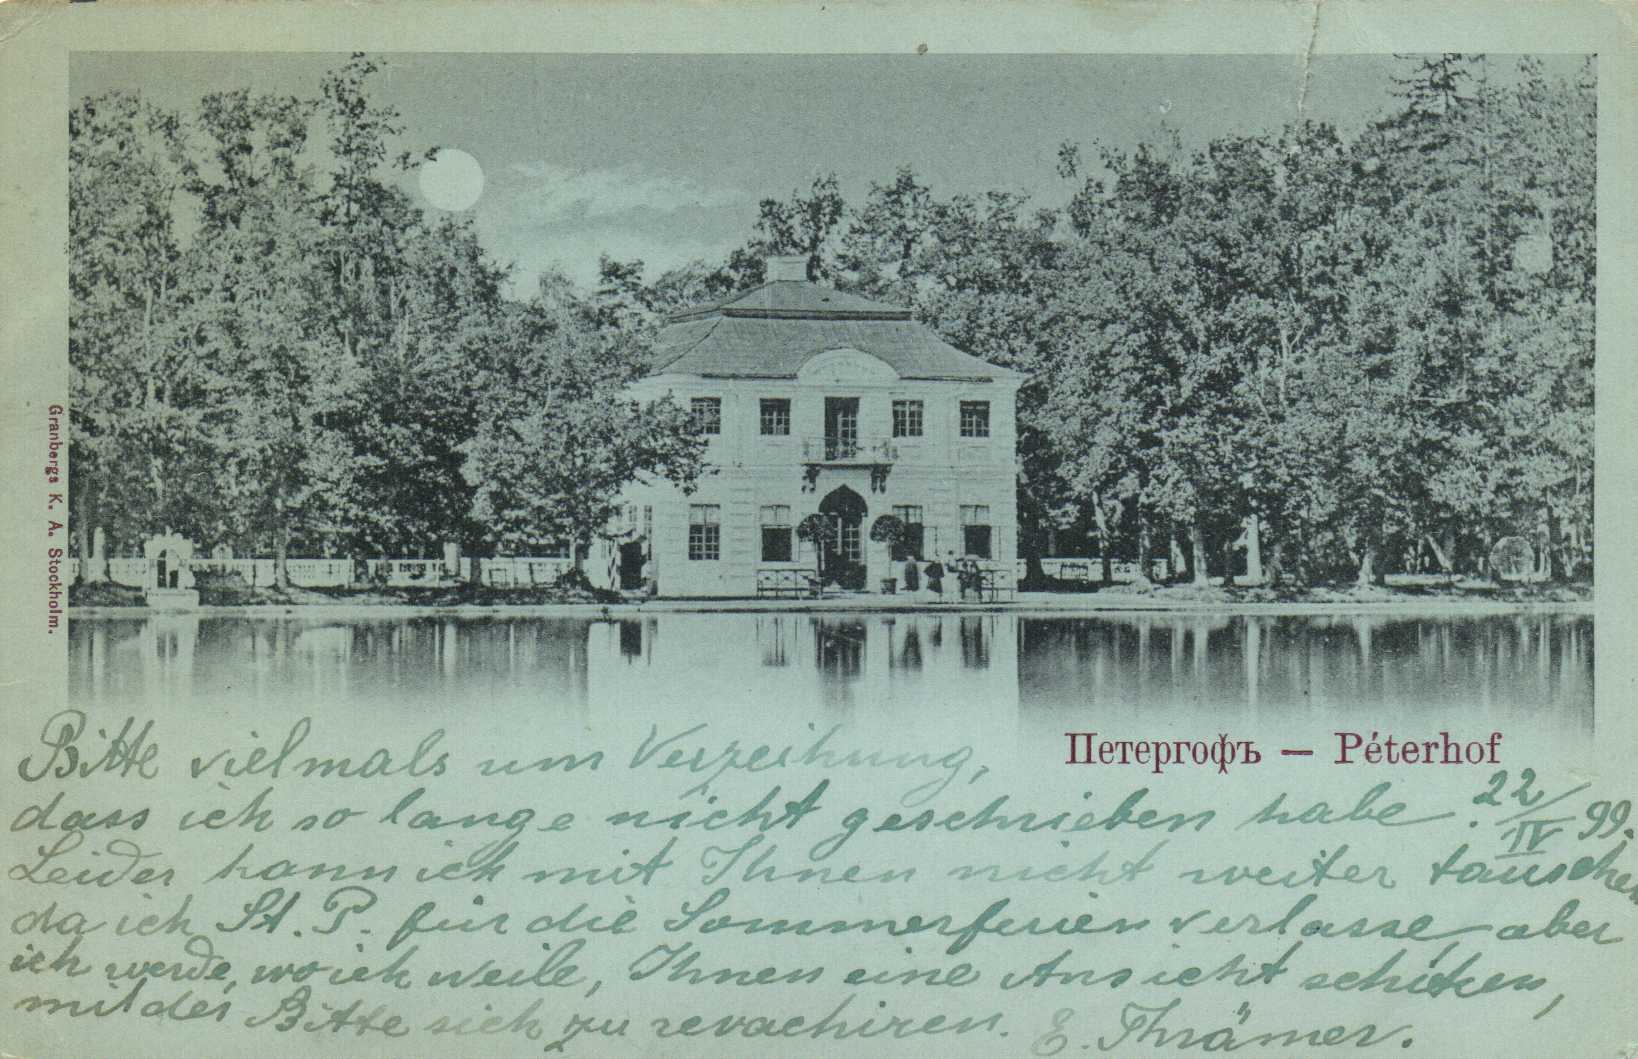 Granbergs K. A. Stockholm.
Петергофъ — Péterhof
Bitte vielmals um Verzeihung,
dass ich so lange nicht geschrieben habe. 22/IV 99.
Leider kann ich mit Ihnen nicht weiter tauschen
da ich St. P. für die Sommerferien verlasse, aber
ich werde, wo ich weile, Ihnen eine Ansicht schicken,
mit der Bitte sich zu revachiren. E. Thrämer.